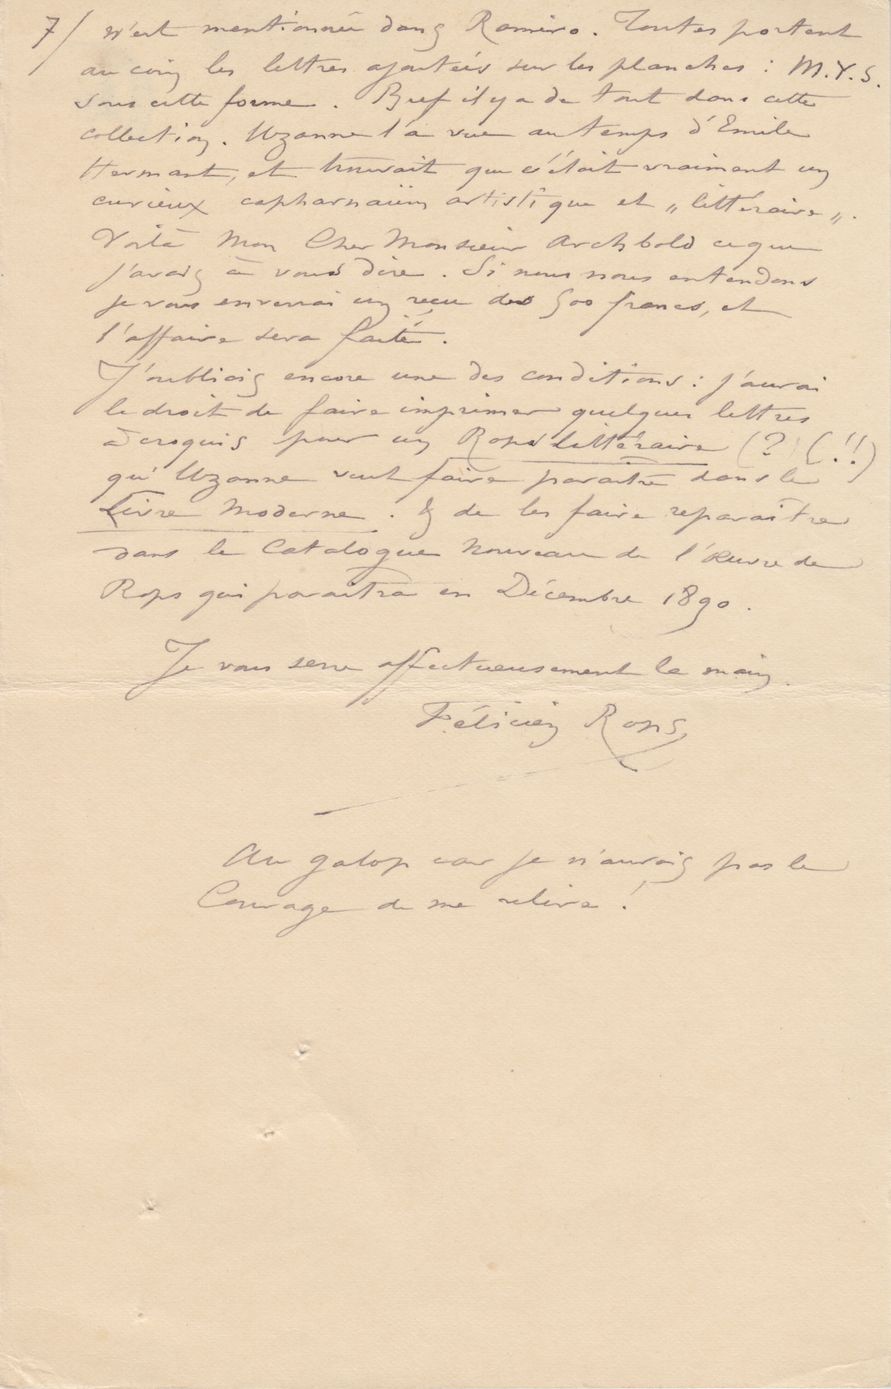 7/ n'est mentionnée dans Ramiro. Toutes portent
au coin les lettres ajoutées sur les planches : M.Y.S.
sous cette forme. Bref il y a de tout dans cette
collection. Uzanne l'a vue au temps d'Emile
Hermant, et trouvait que c'était vraiment un
curieux capharnaüm artistique et „littéraire„.
Voilà Mon Cher Monsieur Archbold ce que
j'avais à vous dire. Si nous nous entendons
je vous enverrai un reçu des 500 francs, et
l'affaire sera faite.
J'oubliais encore une des conditions : j'aurai
le droit de faire imprimer quelques lettres
à croquis pour un Rops littéraire (?) (!!)
qu'Uzanne veut faire paraître dans le
Livre Moderne. & de les faire reparaître
dans le Catalogue Nouveau de l'Œuvre de
Rops qui paraîtra en Décembre 1890.
Je vous serre affectueusement la main.
Félicien Rops
Au galop car je n'aurais pas le
Courage de me relire !